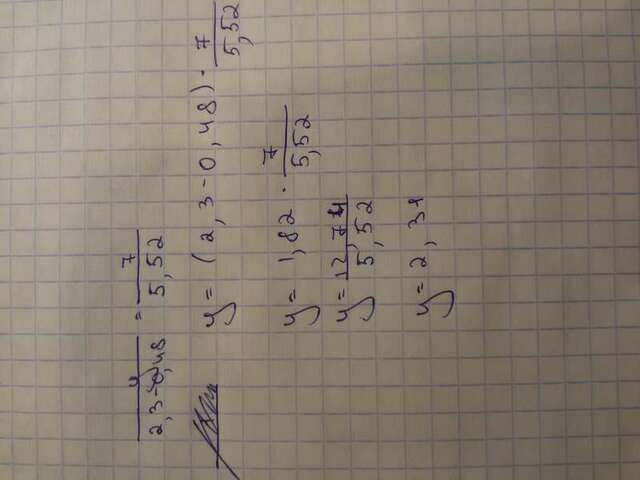 y/(2,3-0,48) = 7/5,52
y = (2,3-0,48) · 7/5,52
y = 1,82 · 7/5,52
y = 12,74/5,52
y = 2,31